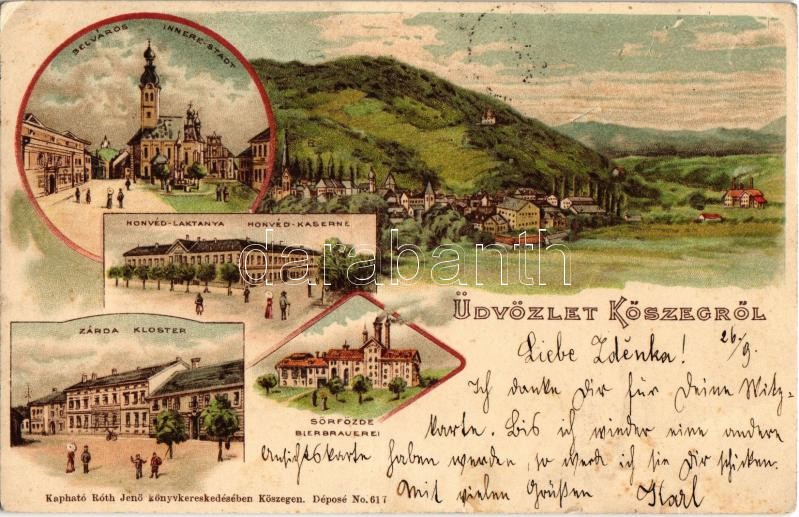 BELVÁROS INNERE-STADT
HONVÉD-LAKTANYA HONVÉD-KASERNE
darabanth
ÜDVÖZLET KŐSZEGRŐL
ZÁRDA KLOSTER
SÖRFŐZDE
BIERBRAUEREI
26/9.
Liebe Zdénka!
Ich danke Dir für Deine Witz-
karte. Bis ich wieder eine andere
Ansichtskarte haben werden, so werde ich sie Dir schicken.
Mit vielen Grüßen Karl
Kapható Róth Jenő könyvkereskedésében Kőszegen. Déposé No. 617